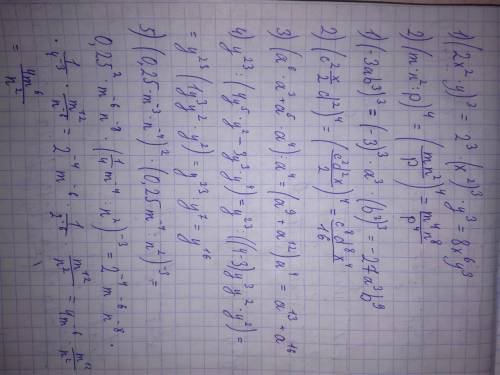 1) (2x²y)³ = 2³ (x²)³ · y³ = 8x⁶y³
2) (mn² : p)⁴ = (mn²/p)⁴ = m⁴n⁸/p⁴
1) (-3ab³)³ = (-3)³ · a³ (b³)³ = -27a³b⁹
2) (c²x/2 d²)⁴ = (c²d²x/2)⁴ = c⁸d⁸x⁴/16
3) (a⁶ · a³ + a⁸ · a⁴) · a⁴ = (a⁹ + a¹²) a⁴ = a¹³ + a¹⁶
4) y²³ : (4y⁵ · y² - 3y³ · y⁴) = y²³ : ((4-3) y³ y² · y²) =
= y²³ : (1y³ y² y²) = y²³ : y⁷ = y¹⁶
5) (0,25 · m⁻³ · n⁻⁴)² · (0,25m⁻⁴ · n²)⁻³ =
0,25² m⁻⁶ n⁻⁸ · (1/4 m⁻⁴ · n²)⁻³ = 2⁻⁴ m⁻⁶ n⁻⁸ ·
1/4⁻³ · m¹² = 2⁻⁴ · m⁻⁶ · 1/2⁻⁶ · m¹² = 4m⁻⁶ m¹²
= 4m⁶/n²